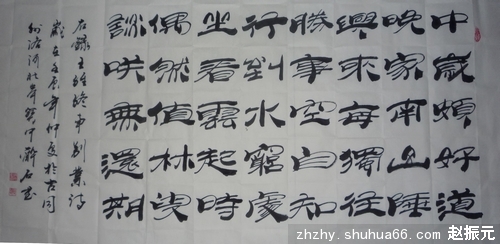 中歲頗好道
晚家南山陲
興來每獨往
勝事空自知
行到水窮處
坐看雲起時
偶然值林叟
談咲無還期
右録王維終南別業詩
歲在庚寅年仲夏於古同
州洛河北岸
zhzhy.shuhua66.com 赵振元